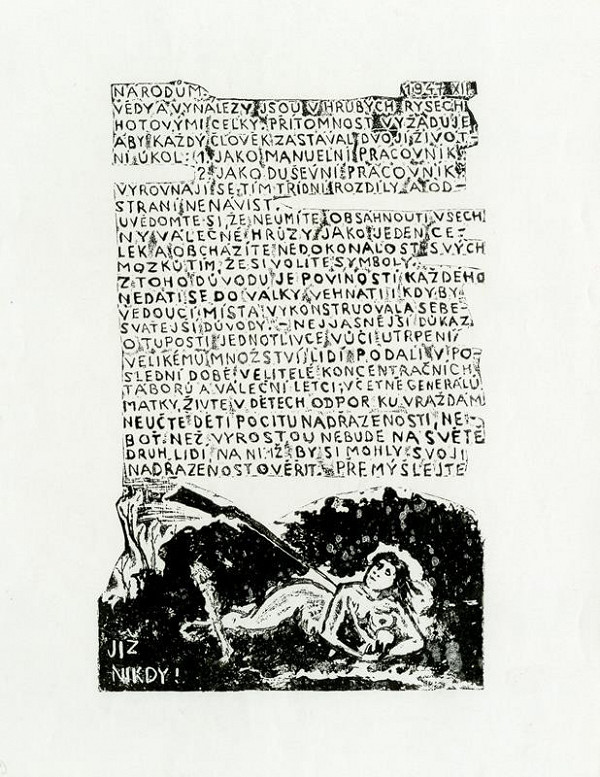 NÁRODŮM. 1947 XII.
VĚDY A VYNÁLEZY JSOU V HRUBÝCH RYSECH
HOTOVÝMI CELKY. PŘÍTOMNOST VYŽADUJE
ABY KAŽDÝ ČLOVĚK ZASTÁVAL DVOJÍ ŽIVOT-
NÍ ÚKOL: (1 JAKO MANUELNÍ PRACOVNÍK
2 JAKO DUŠEVNÍ PRACOVNÍK
VYROVNAJÍ SE TÍM TŘÍDNÍ ROZDÍLY A OD-
STRANÍ NENÁVIST.
UVĚDOMTE SI, ŽE NEUMÍTE OBSÁHNOUTI VŠECH
NY VÁLEČNÉ HRŮZY JAKO JEDEN CE-
LEK A OBCHÁZÍTE NEDOKONALOST SVÝCH
MOZKŮ TÍM, ŽE SI VOLÍTE SYMBOLY.
Z TOHO DŮVODU JE POVINOSTÍ KAŽDÉHO
NEDATI SE DO VÁLKY VEHNATI I KDYBY
VEDOUCÍ MÍSTA VYKONSTRUOVALA SEBE-
SVATĚJŠÍ DŮVODY. - NEJJASNĚJŠÍ DŮKAZ
O TUPOSTI JEDNOTLIVCE VŮČI UTRPENÍ
VELIKÉMU MNOŽSTVÍ LIDÍ PODALI V PO-
SLEDNÍ DOBĚ VELITELÉ KONCENTRAČNÍCH
TÁBORŮ A VÁLEČNÍ LETCI, VČETNĚ GENERÁLŮ.
MATKY, ŽIVTE V DĚTECH ODPOR KU VRAŽDÁM
NEUČTE DĚTI POCITU NADŘAZENOSTI, NE-
BOŤ NEŽ VYROSTOU NEBUDE NA SVĚTĚ
DRUH LIDÍ NA NIMŽ BY SI MOHLY SVOJI
NADŘAZENOST OVĚŘIT. PŘEMÝŠLEJTE
JIŽ
NIKDY!